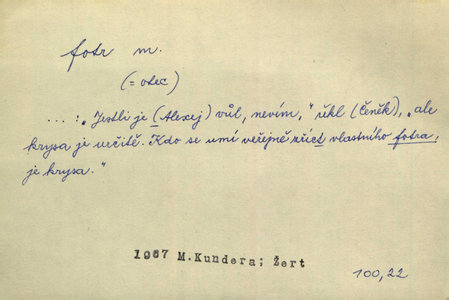 fotr m.
(= otec)
...: „Jestli je (Alexej) vůl, nevím," řekl (Čeněk), „ale
krysa je určitě. Kdo se umí veřejně zříct vlastního fotra,
je krysa."
1967 M.Kundera; Žert
100,22